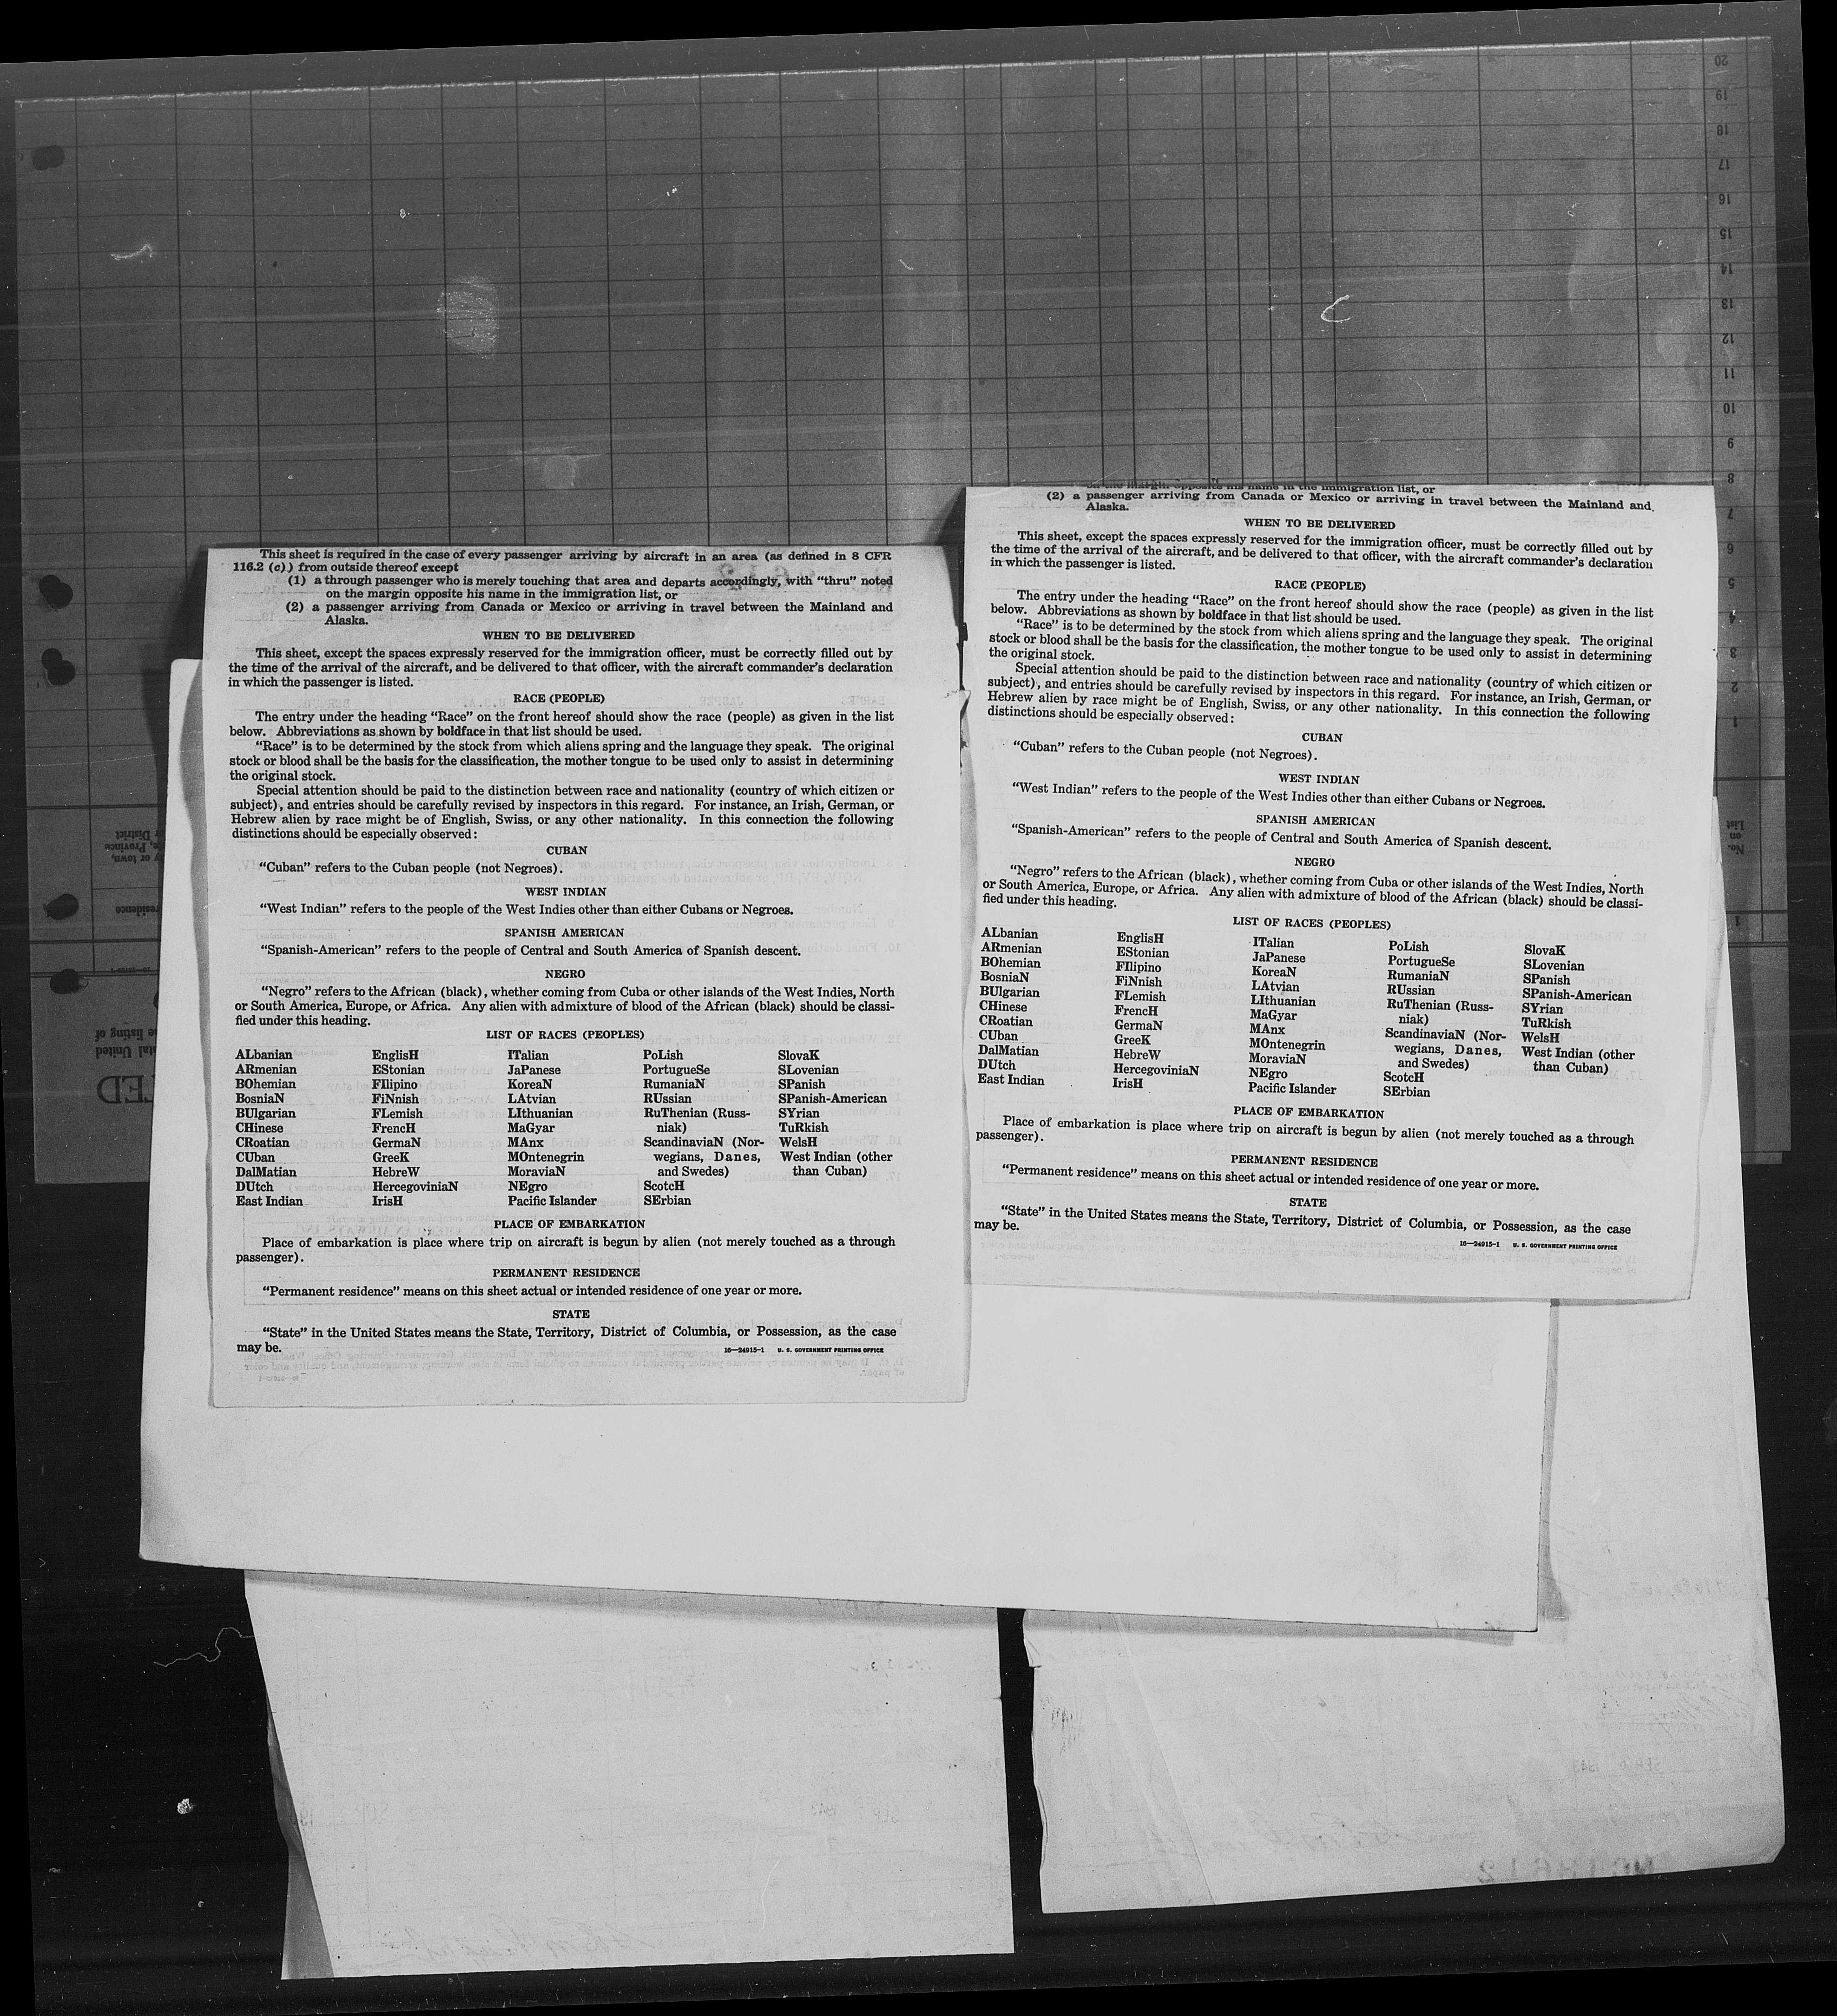 This sheet is required in the case of every passenger arriving by aircraft in an area (as defined in 8 CFR
116.2 (c)) from outside thereof except
(1) a through passenger who is merely touching that area and departs accordingly, with “thru” noted
on the margin opposite his name in the immigration list, or
(2) a passenger arriving from Canada or Mexico or arriving in travel between the Mainland and
Alaska.
WHEN TO BE DELIVERED
This sheet, except the spaces expressly reserved for the immigration officer, must be correctly filled out by
the time of the arrival of the aircraft, and be delivered to that officer, with the aircraft commander’s declaration
in which the passenger is listed.
RACE (PEOPLE)
The entry under the heading “Race” on the front hereof should show the race (people) as given in the list
below. Abbreviations as shown by boldface in that list should be used.
“Race” is to be determined by the stock from which aliens spring and the language they speak. The original
stock or blood shall be the basis for the classification, the mother tongue to be used only to assist in determining
the original stock.
Special attention should be paid to the distinction between race and nationality (country of which citizen or
subject), and entries should be carefully revised by inspectors in this regard. For instance, an Irish, German, or
Hebrew alien by race might be of English, Swiss, or any other nationality. In this connection the following
distinctions should be especially observed:
CUBAN
“Cuban” refers to the Cuban people (not Negroes).
WEST INDIAN
“West Indian” refers to the people of the West Indies other than either Cubans or Negroes.
SPANISH AMERICAN
“Spanish-American” refers to the people of Central and South America of Spanish descent.
NEGRO
“Negro” refers to the African (black), whether coming from Cuba or other islands of the West Indies, North
or South America, Europe, or Africa. Any alien with admixture of blood of the African (black) should be classi-
fied under this heading.
LIST OF RACES (PEOPLES)
ALbanian EnglisH ITalian PoLish SlovaK
ARmenian EStonian JaPanese PortugueSe SLovenian
BOhemian FIlipino KoreaN RumaniaN SPanish
BosniaN FiNnish LAtvian RUssian SPanish-American
BUlgarian FLemish LIthuanian RuThenian (Russ- SYrian
CHinese FrencH MaGyar niak) TuRkish
CRoatian GermaN MAnx ScandinaviaN (Nor- WelsH
CUban GreeK MOntenegrin wegians, Danes, West Indian (other
DalMatian HebreW MoraviaN and Swedes) than Cuban)
DUtch HercegoviniaN NEgro ScotcH
East Indian IrisH Pacific Islander SErbian
PLACE OF EMBARKATION
Place of embarkation is place where trip on aircraft is begun by alien (not merely touched as a through
passenger).
PERMANENT RESIDENCE
“Permanent residence” means on this sheet actual or intended residence of one year or more.
STATE
“State” in the United States means the State, Territory, District of Columbia, or Possession, as the case
may be.
16—24915-1 U. S. GOVERNMENT PRINTING OFFICE
on the margin opposite his name in the immigration list, or
(2) a passenger arriving from Canada or Mexico or arriving in travel between the Mainland and
Alaska.
WHEN TO BE DELIVERED
This sheet, except the spaces expressly reserved for the immigration officer, must be correctly filled out by
the time of the arrival of the aircraft, and be delivered to that officer, with the aircraft commander’s declaration
in which the passenger is listed.
RACE (PEOPLE)
The entry under the heading “Race” on the front hereof should show the race (people) as given in the list
below. Abbreviations as shown by boldface in that list should be used.
“Race” is to be determined by the stock from which aliens spring and the language they speak. The original
stock or blood shall be the basis for the classification, the mother tongue to be used only to assist in determining
the original stock.
Special attention should be paid to the distinction between race and nationality (country of which citizen or
subject), and entries should be carefully revised by inspectors in this regard. For instance, an Irish, German, or
Hebrew alien by race might be of English, Swiss, or any other nationality. In this connection the following
distinctions should be especially observed:
CUBAN
“Cuban” refers to the Cuban people (not Negroes).
WEST INDIAN
“West Indian” refers to the people of the West Indies other than either Cubans or Negroes.
SPANISH AMERICAN
“Spanish-American” refers to the people of Central and South America of Spanish descent.
NEGRO
“Negro” refers to the African (black), whether coming from Cuba or other islands of the West Indies, North
or South America, Europe, or Africa. Any alien with admixture of blood of the African (black) should be classi-
fied under this heading.
LIST OF RACES (PEOPLES)
ALbanian EnglisH ITalian PoLish SlovaK
ARmenian EStonian JaPanese PortugueSe SLovenian
BOhemian FIlipino KoreaN RumaniaN SPanish
BosniaN FiNnish LAtvian RUssian SPanish-American
BUlgarian FLemish LIthuanian RuThenian (Russ- SYrian
CHinese FrencH MaGyar niak) TuRkish
CRoatian GermaN MAnx ScandinaviaN (Nor- WelsH
CUban GreeK MOntenegrin wegians, Danes, West Indian (other
DalMatian HebreW MoraviaN and Swedes) than Cuban)
DUtch HercegoviniaN NEgro ScotcH
East Indian IrisH Pacific Islander SErbian
PLACE OF EMBARKATION
Place of embarkation is place where trip on aircraft is begun by alien (not merely touched as a through
passenger).
PERMANENT RESIDENCE
“Permanent residence” means on this sheet actual or intended residence of one year or more.
STATE
“State” in the United States means the State, Territory, District of Columbia, or Possession, as the case
may be.
16—24915-1 U. S. GOVERNMENT PRINTING OFFICE
20
19
18
17
16
15
14
13
12
11
10
9
8
7
6
5
4
3
2
1
No.
on
List